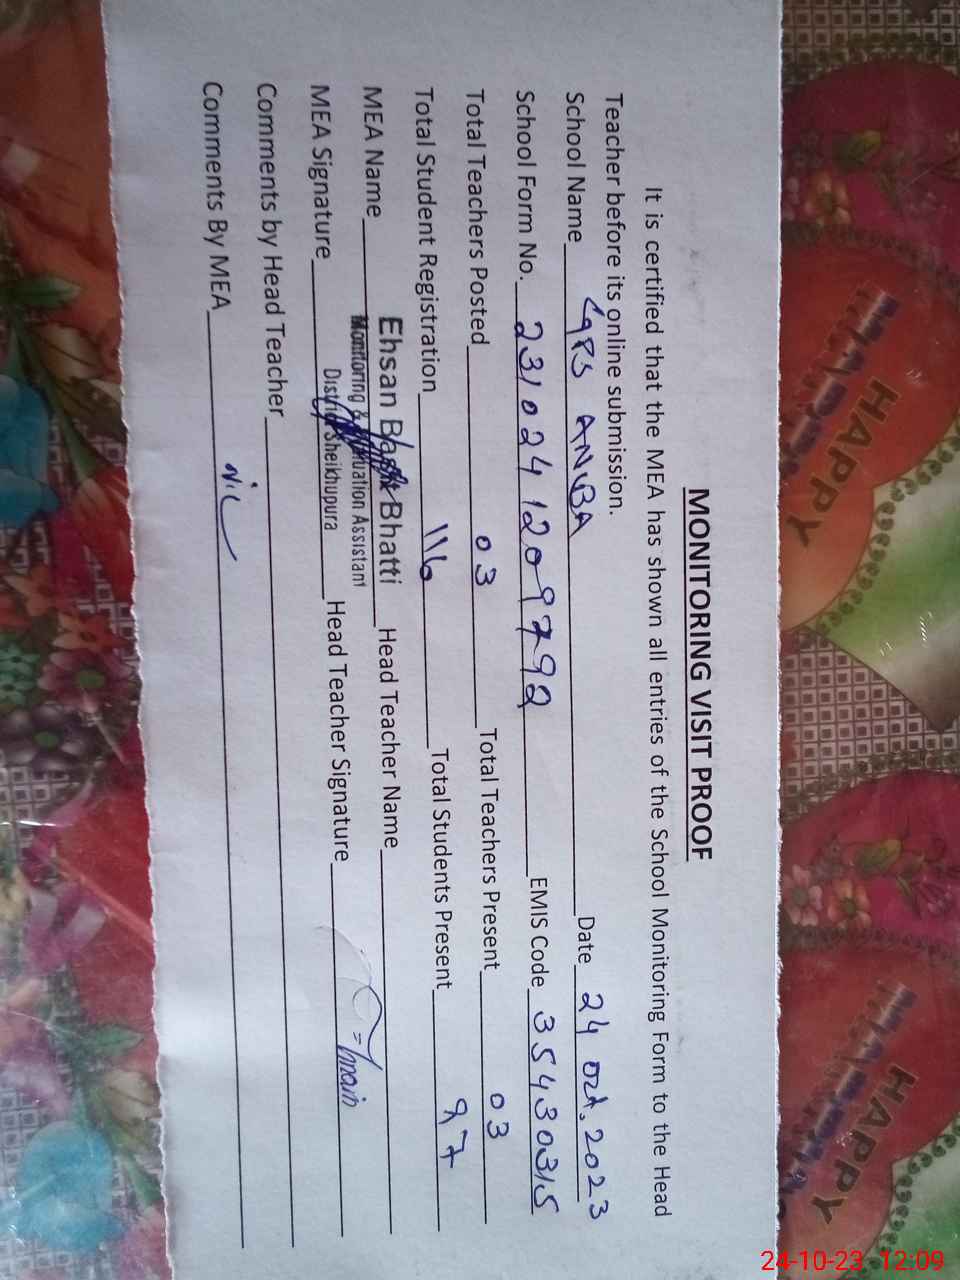 MONITORING VISIT PROOF
It is certified that the MEA has shown all entries of the School Monitoring Form to the Head
Teacher before its online submission.
School Name GPS ANBA Date 24 Oct, 2023
School Form No. 2310241209792 EMIS Code 35430315
Total Teachers Posted 03 Total Teachers Present 03
Total Student Registration 116 Total Students Present 97
MEA Name Ehsan Bhatti Head Teacher Name
Monitoring & Assistant
MEA Signature District Sheikhupura Head Teacher Signature
Comments by Head Teacher
Comments By MEA Nil
HAPPY
HAPPY
24-10-23 12:09